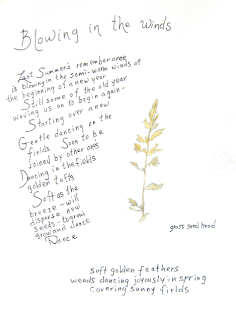 Blowing in the Winds
Last Summer's remembrance
is blowing in the semi-warm winds of
the beginning of a new year
Still some of the old year
waving us on to begin again-
Starting over anew
Gentle dancing on the
fields Soon to be
joined by other ones
Dancing in the fields
golden tufts
Soft as the
breeze - will
disperse new
seeds - to grow
grow and dance
Dance
grass seed head
soft golden feathers
weeds dancing joyously in spring
covering sunny fields